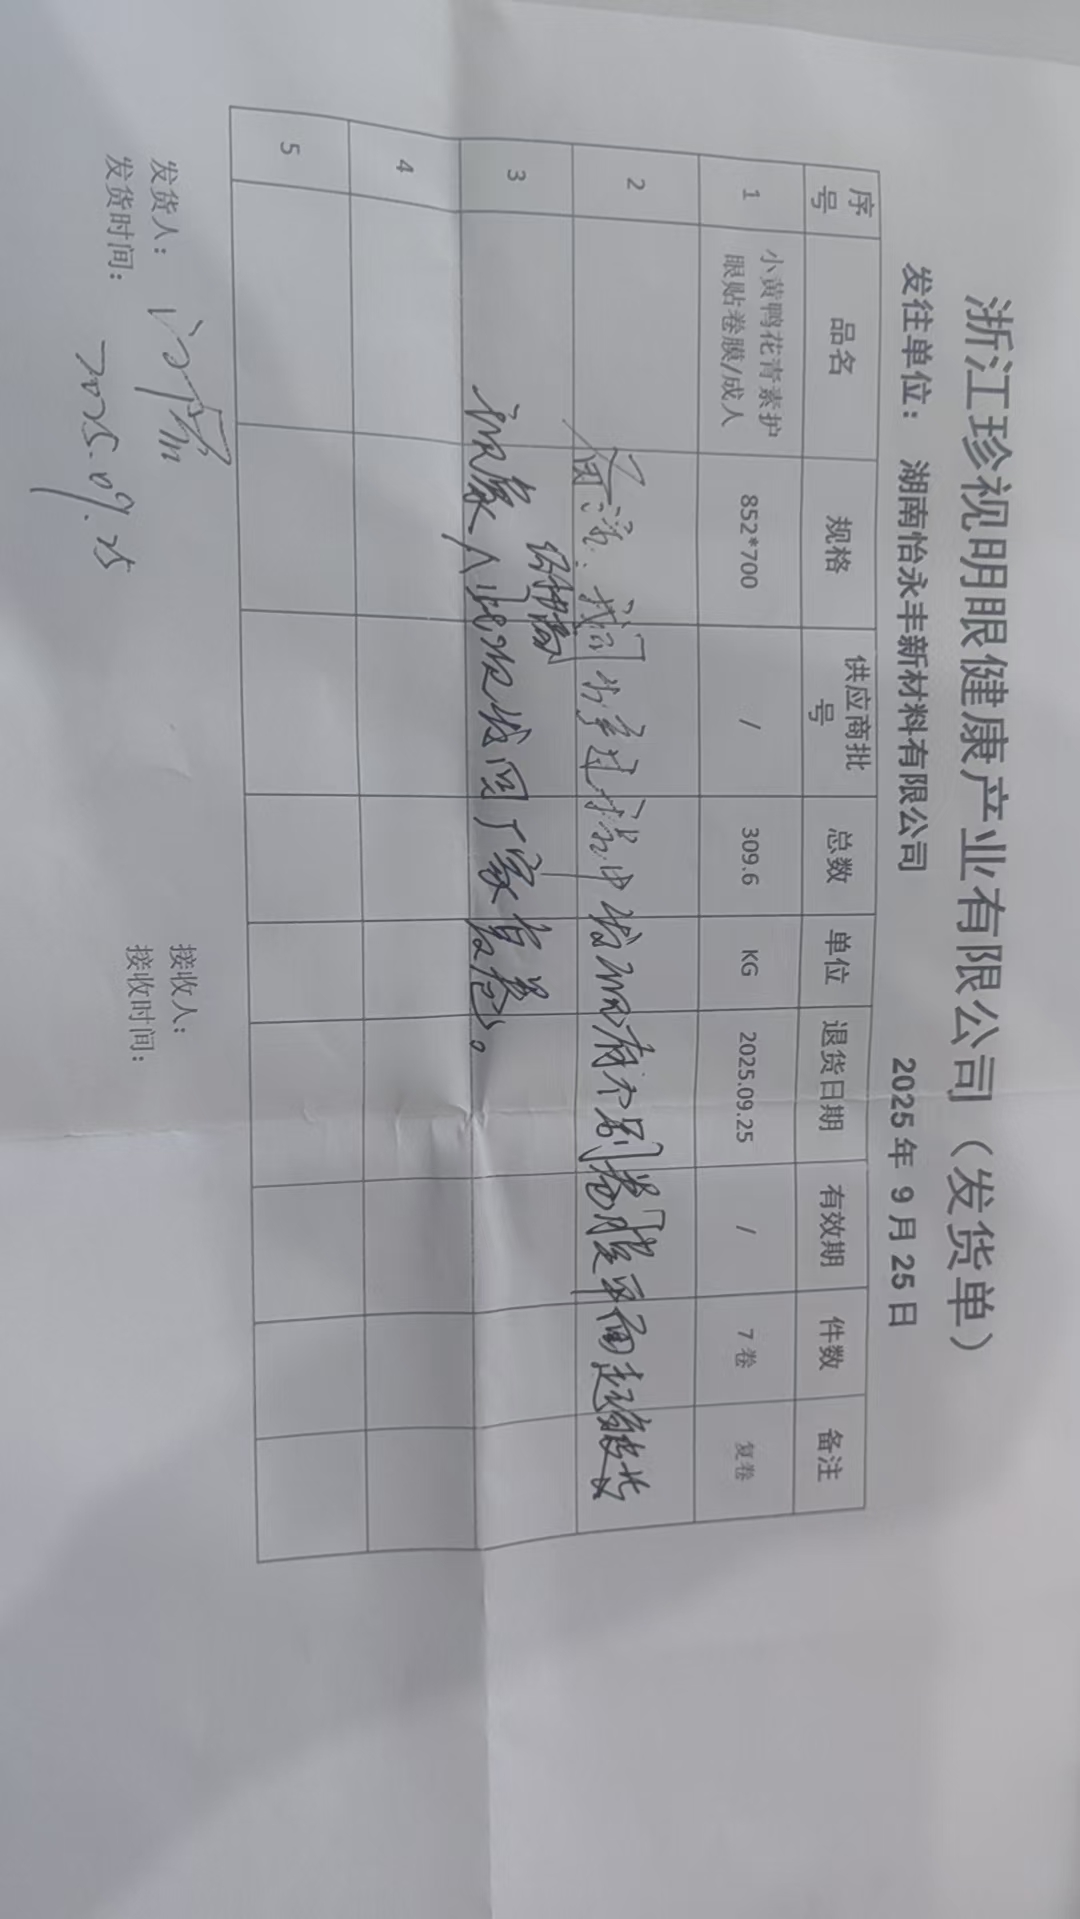 浙江珍视明眼健康产业有限公司（发货单）
发往单位： 湖南怡永丰新材料有限公司 2025年 9月25日
序号 品名 规格 供应商批号 总数 单位 退货日期 有效期 件数 备注
1 小黄鸭花青素护眼贴卷膜/成人 852*700 / 309.6 KG 2025.09.25 / 7卷 复卷
2
备注：我司生产过程中发现有个别卷膜平面起皱
3
现象
发回厂家
复卷。
4
5
发货人： 接收人：
发货时间： 2025.09.25 接收时间：